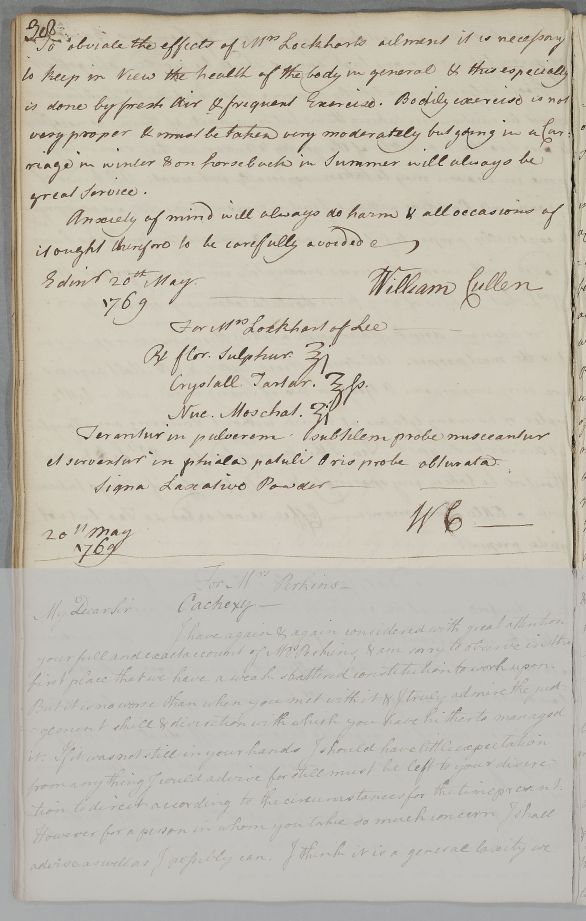 308
To obviate the effects of Mrs Lockharts ailment it is necessary
to keep in View the health of the body in general & this especially
is done by fresh Air & frequent Exercise. Bodily exercise is not
very proper & must be taken very moderately but going in a Car-
riage in winter & on horseback in Summer will always be
great Service.
Anxiety of mind will always do harm & all occasions of
it ought therefore to be carefully avoided
Edinr 20th May
1769
William Cullen
For Mrs Lockhart of Lee
℞ flor. Sulphur. ℥j
Crystall. Tartar. ℥fs.
Nuc. Moschat. ʒj
Terantur in pulverem subtilem probe misceantur
et serventur in phiala patuli Oris probe obturata
Signa Laxative Powder
WC
20th May
1769
For Mrs Perkins
My Dear Sir Cachexy
I have again & again considered with great attention
your full and exact account of Mrs Perkins, & am sorry to observe in the
first place that we have a weak shattered constitution to work upon.
But it is no worse than when you met with it & I truly admire the jud-
gement skill & discretion with which you have hitherto managed
it. If it was not still in your hands I should have little expectation
from any thing I could advise for still must be left to your discre-
tion to direct according to the circumstances for the time present.
However for a person in whom you take so much concern I shall
advise as well as I possibly can. I think it is a general laxity we